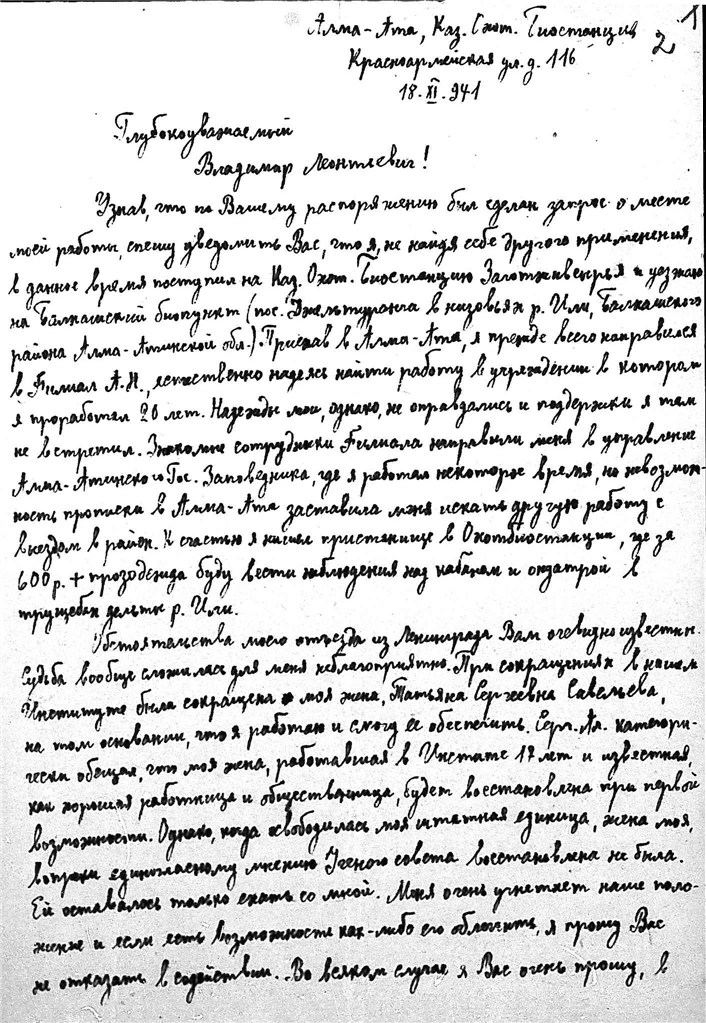 1
Алма-Ата, Каз. Охот. Биостанция
2
Красноармейская ул. д. 116
18.XI.941
Глубокоуважаемый
Владимир Леонтиевич!
Узнав, что по Вашему распоряжению был сделан запрос о месте
моей работы, спешу уведомить Вас, что я, не найдя себе другого применения,
в данное время поступил на Каз. Охот. Биостанцию Заготживсырья и уезжаю
на Балхашский биопункт (пос. в низовьях р. Или, Балхашского
района Алма-Атинской обл.). Приехав в Алма-Ата, я прежде всего направился
в Филиал А.Н., естественно надеясь найти работу в учреждении в котором
я проработал 20 лет. Надежды мои, однако, не оправдались и поддержки я там
не встретил. Знакомые сотрудники Филиала направили меня в управление
Алма-Атинского Гос. Заповедника, где я работал некоторое время, но невозмож-
ность прописки в Алма-Ата заставила меня искать другую работу с
выездом в район. К счастью я нашел пристанище в Охотбиостанции, где за
600 р. + прозодежда буду вести наблюдения над кабаном и ондатрой в
трущебах дельты р. Или.
Обстоятельства моего отъезда из Ленинграда Вам очевидно известны.
Судьба вообще сложилась для меня неблагоприятно. При сокращениях в нашем
Институте была сокращена моя жена, Татьяна Сергеевна Савельева,
на том основании, что я работаю и смогу ее обеспечить. Серг. Ал. категори-
чески обещал, что моя жена, работавшая в Инстите 17 лет и известная,
как хорошая работница и общественница, будет восстановлена при первой
возможности. Однако, когда освободилась моя штатная единица, жена моя,
вопреки единогласному мнению Ученого совета восстановлена не была.
Ей оставалось только ехать со мной. Меня очень угнетает наше поло-
жение и если есть возможность как-либо его облегчить, я прошу Вас
не отказать в содействии. Во всяком случае я Вас очень прошу, в